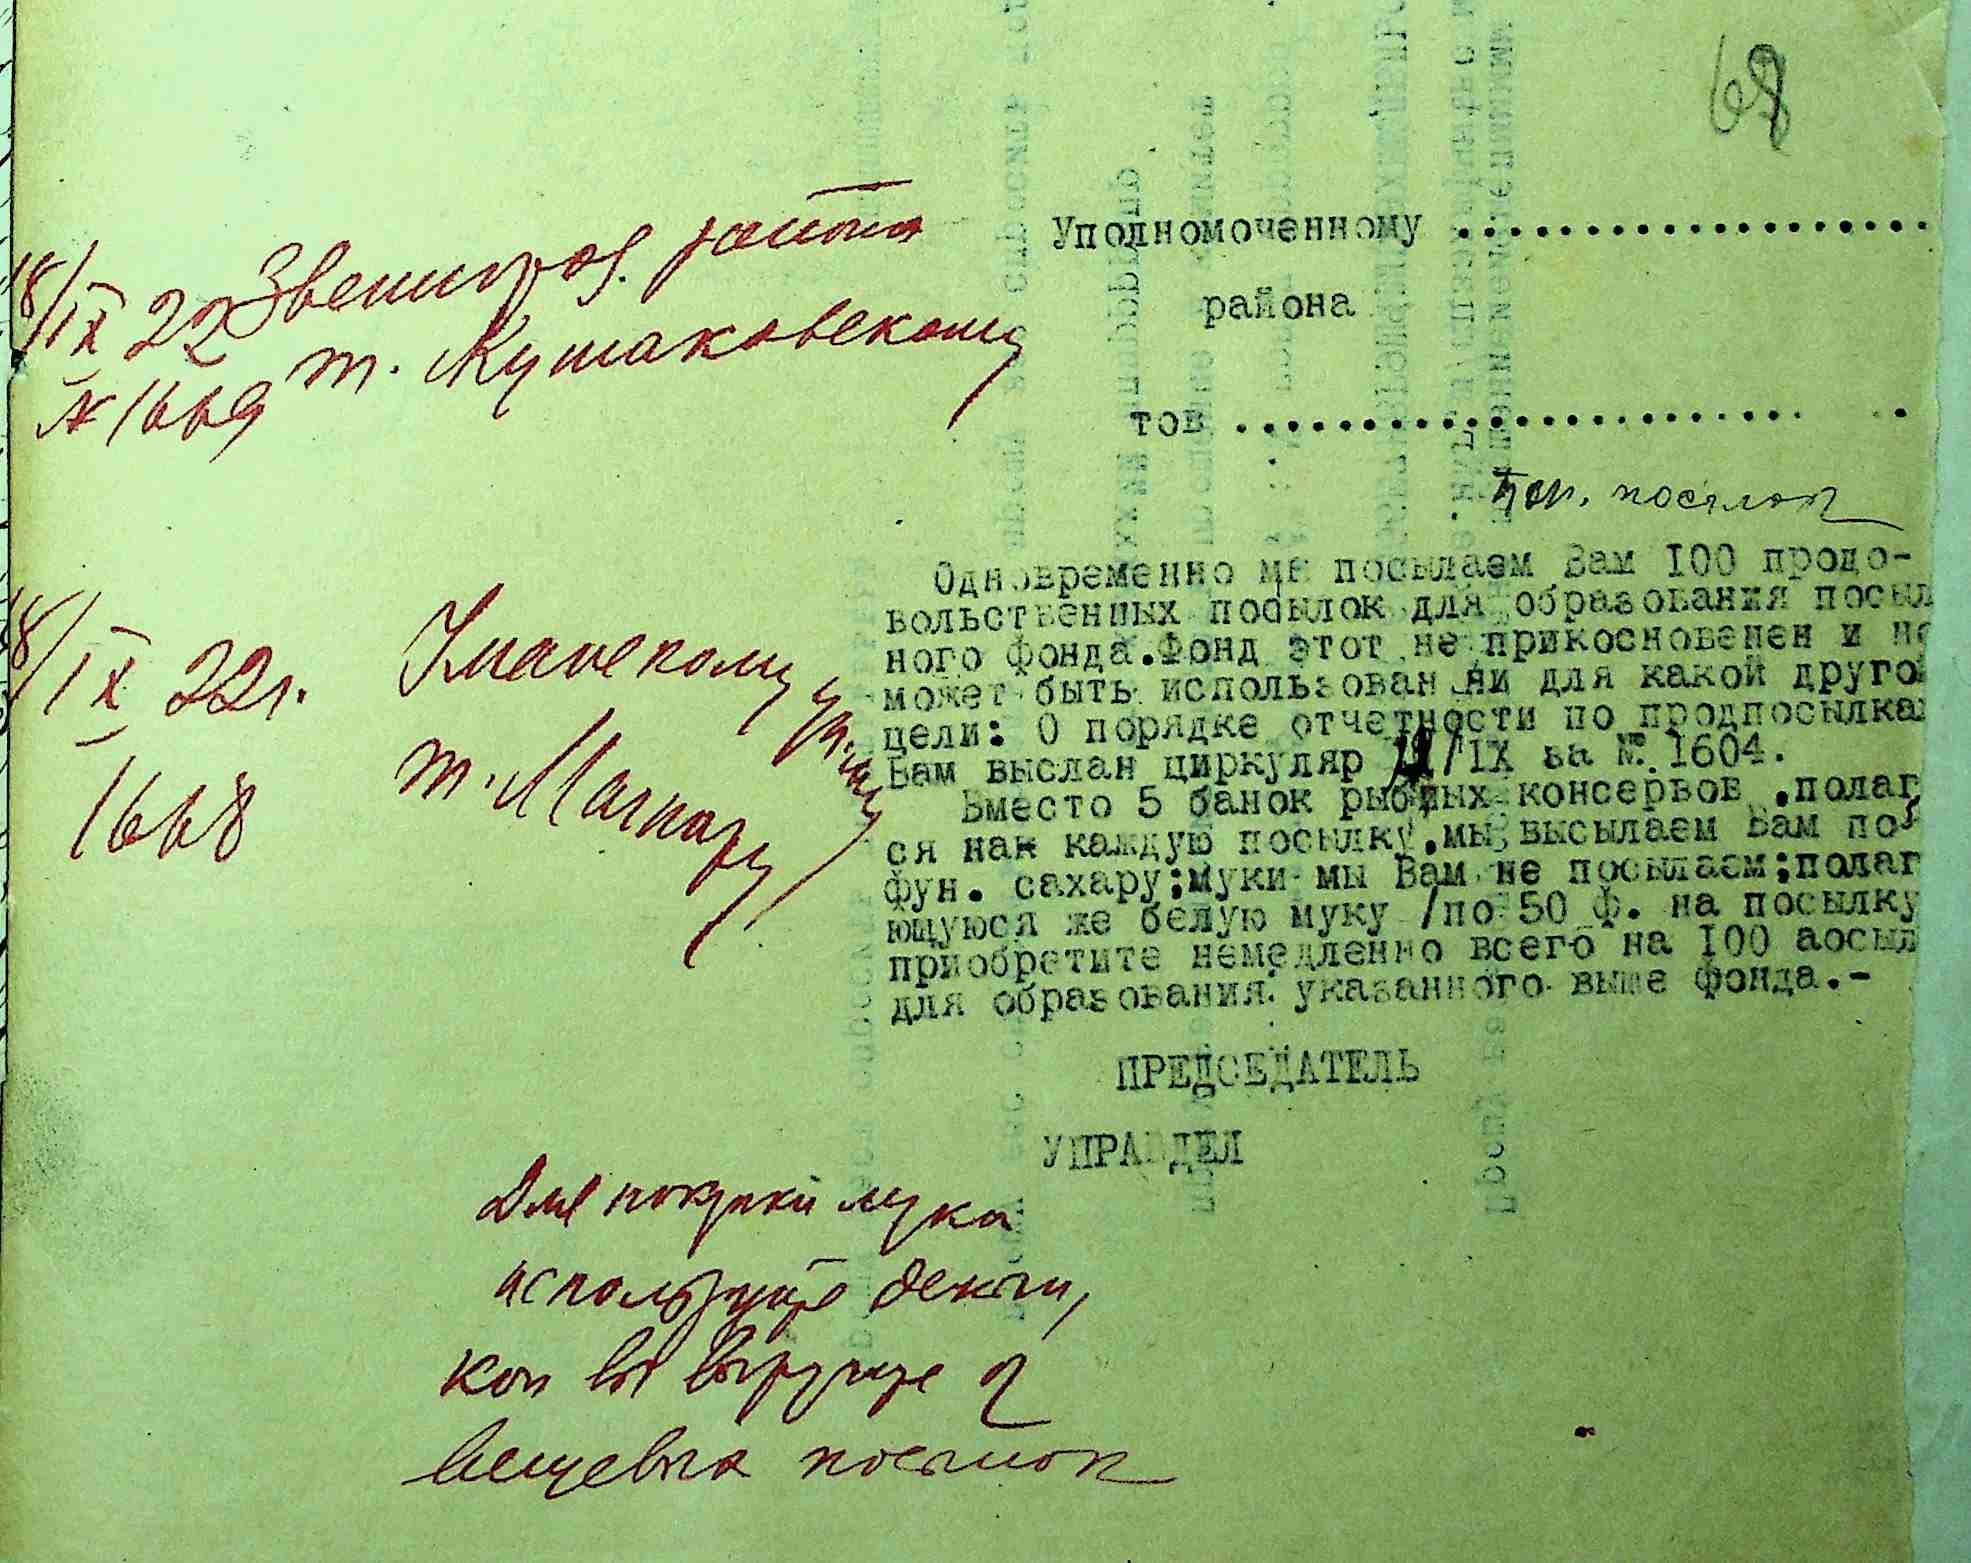 68
Уполномоченному ...................
района
тов ....................... ..
18/IX 22 Звенигород. района
№ 1669 т. Кушаковскому
посылок
18/IX 22 г. Уманскому
1668 т. Магнару
Одновременно мы посылаем Вам I00 продо-
вольственных посылок для образования посыл
ного фонда.Фонд этот не прикосновенен и не
может быть использован ни для какой другой
цели: О порядке отчетности по продпосылка
Вам выслан циркуляр /IX за № 1604.
Вместо 5 банок рыбных консервов ,полаг
ся нак каждую посылку,мы высылаем Вам по
фун. сахару;муки мы Вам не посылаем;полаг
ющуюся же белую муку /по 50 ф. на посылку
приобретите немедленно всего на I00 аосыл
для образования указанного выше фонда.-
ПРЕДСЕДАТЕЛЬ
УПРАВДЕЛ
Для покупки мука
используйте деньги,
кот вы выручите
вещевых посылок